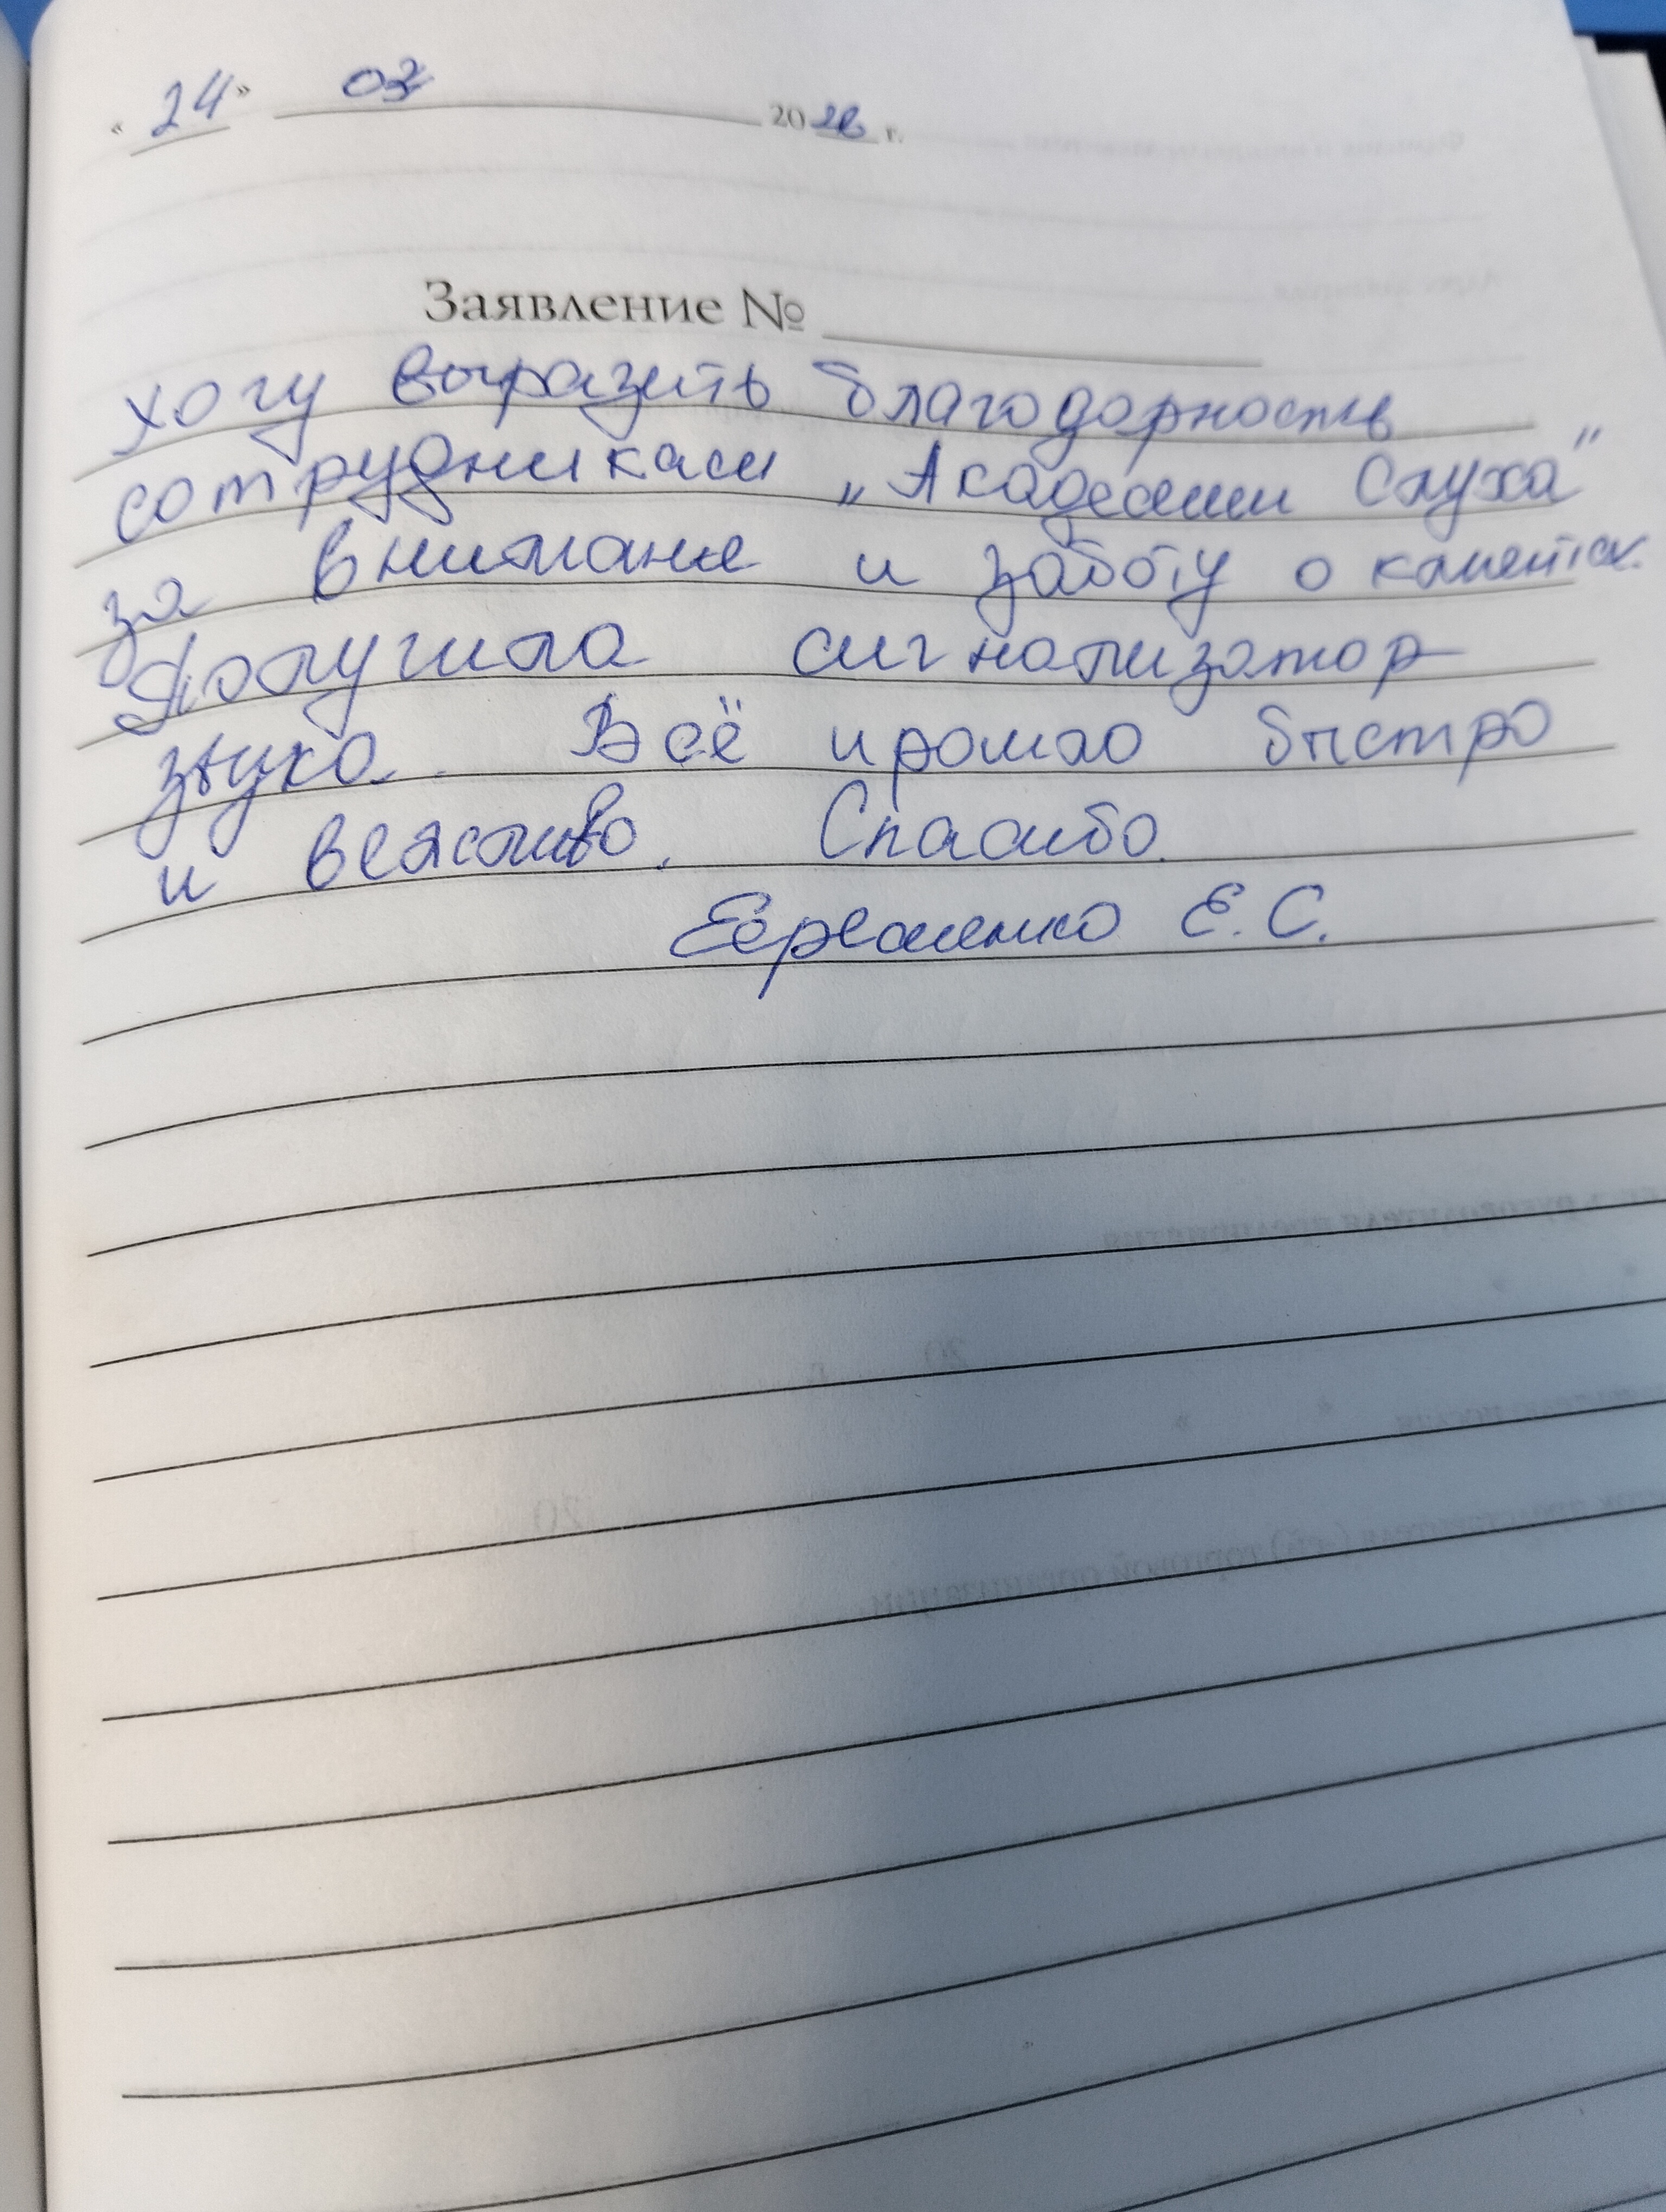 « 24 » 03 2026 г.
Заявление №
Хочу выразить благодорность
сотрудникам „Академии Слуха"
за внимание и заботу о клиентах.
Получила сигнализатор
звука. Всё прошло быстро
и вежливо. Спасибо.
Ефременко Е. С.